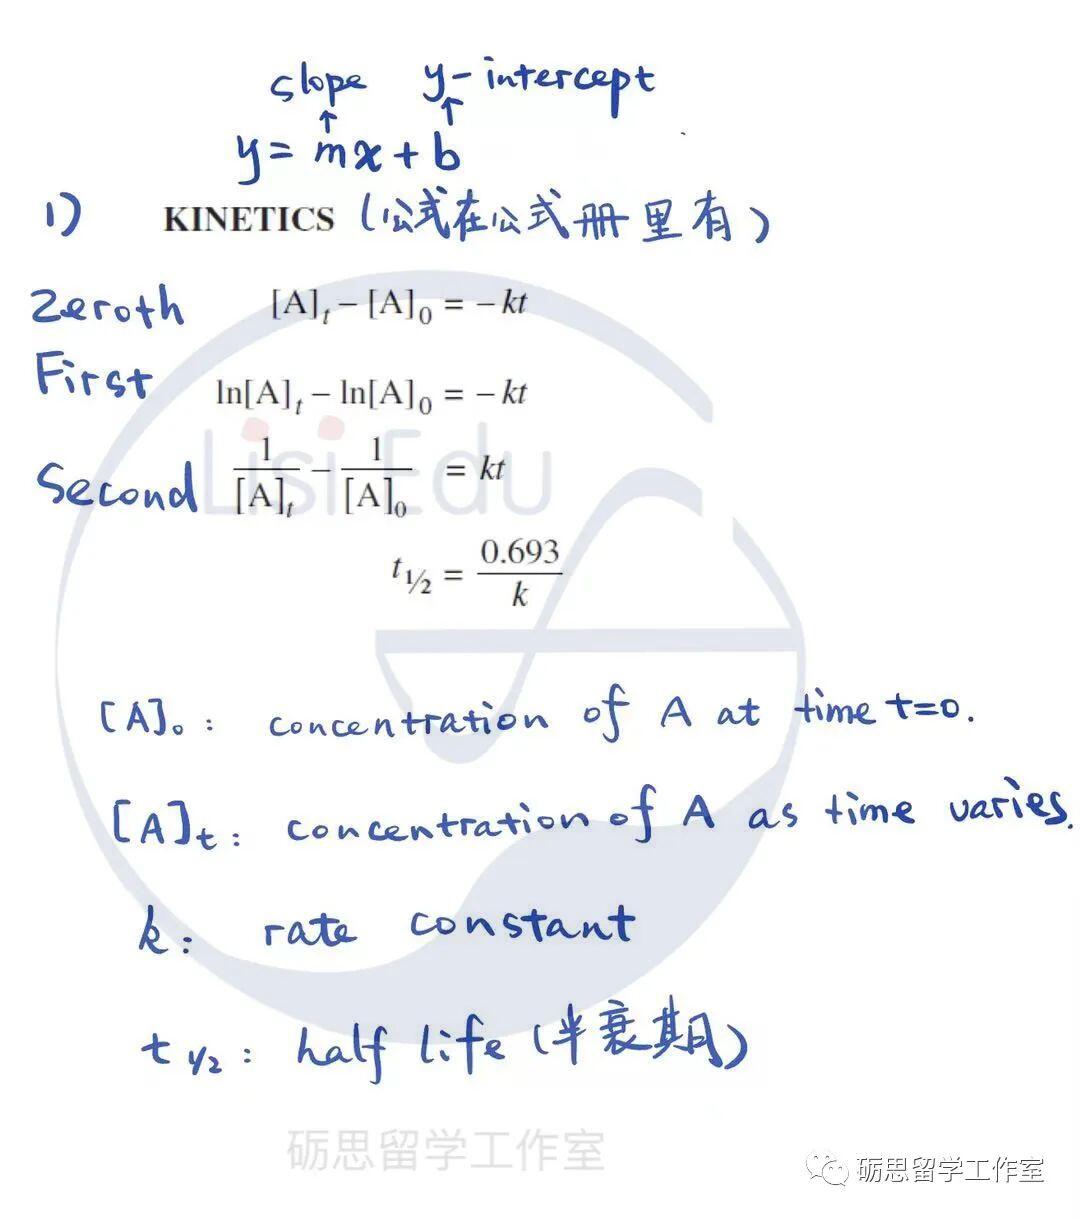 slope y-intercept
y = mx + b
1) KINETICS (公式在公式册里有)
Zeroth [A]t − [A]0 = −kt
First ln[A]t − ln[A]0 = −kt
Lisi Edu
Second 1/[A]t − 1/[A]0 = kt
t½ = 0.693/k
[A]0: concentration of A at time t=0.
[A]t: concentration of A as time varies.
k: rate constant
t1/2: half life (半衰期)
砺思留学工作室
砺思留学工作室